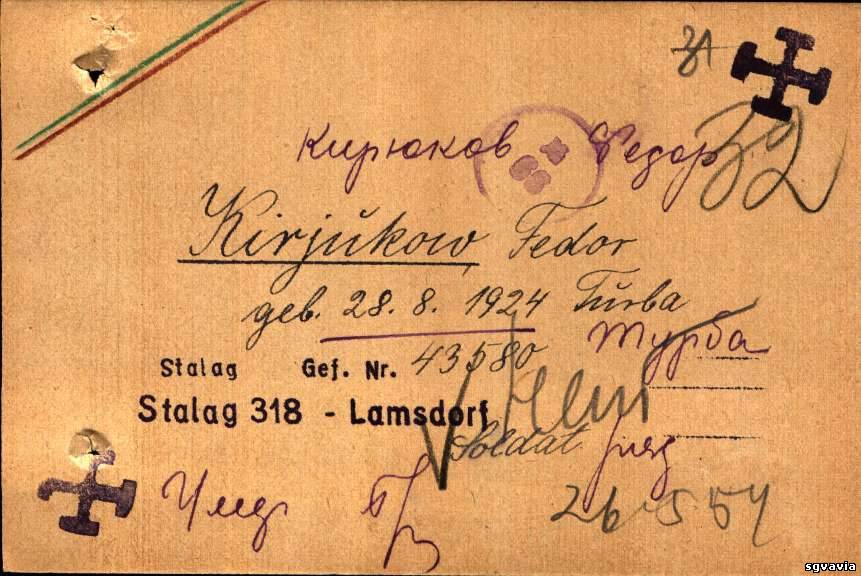 32
Кирюков Федор
Kirjŭkow, Fedor
geb. 28.8.1924 Tŭrba
Турба
Stalag Gef. Nr. 43580
Stalag 318 - Lamsdorf
Soldat ряд
26-5 54
sgvavia